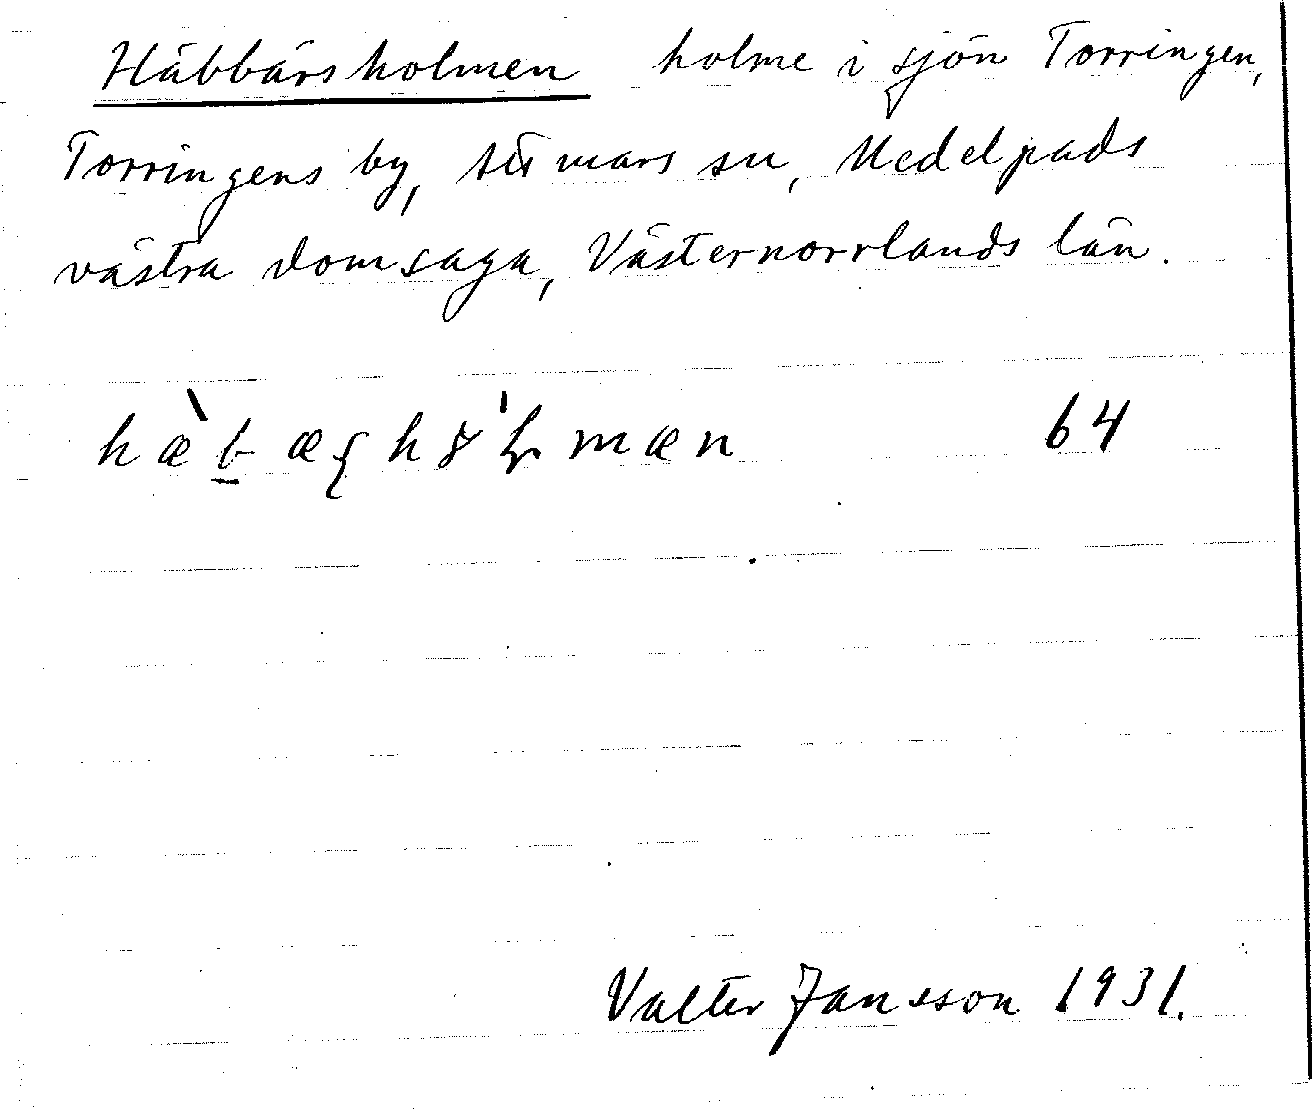 Häbbärsholmen holme i sjön Torringen,
Torringens by, Attmars sn, Medelpads
västra domsaga, Västernorrlands län.
64
Valter Jansson 1931.